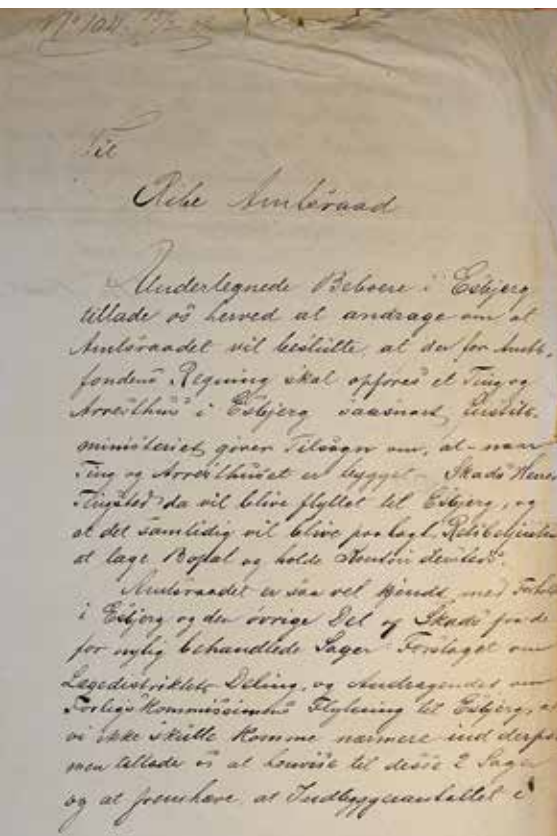 Til
Ribe Amtsraad
Undertegnede Beboere i Esbjerg
tillade os herved at andrage om at
Amtsraadet vil beslutte, at der for Amts-
fondens Regning skal opføres et Ting og
Arresthus i Esbjerg saasnart Justits-
ministeriet giver Tilsagn om, at - naar
Ting og Arresthuset er bygget - Skads Herreds
Tingsted da vil blive flyttet til Esbjerg, og
at det samtidig vil blive paalagt Retsbetjenten
at tage Bopæl og holde Kontor dersteds.
Amtsraadet er saa vel kjendt med Forhold
i Esbjerg og den øvrige Del af Skads fra de
for nylig behandlede Sager Forslaget om
Lægedistriktets Deling, og Andragendet om
Forligskommissionens Flytning til Esbjerg, at
vi ikke skulle komme nærmere ind derpaa
men tillade os at henvise til disse 2 Sager
og at fremhæve, at Indbyggerantallet i